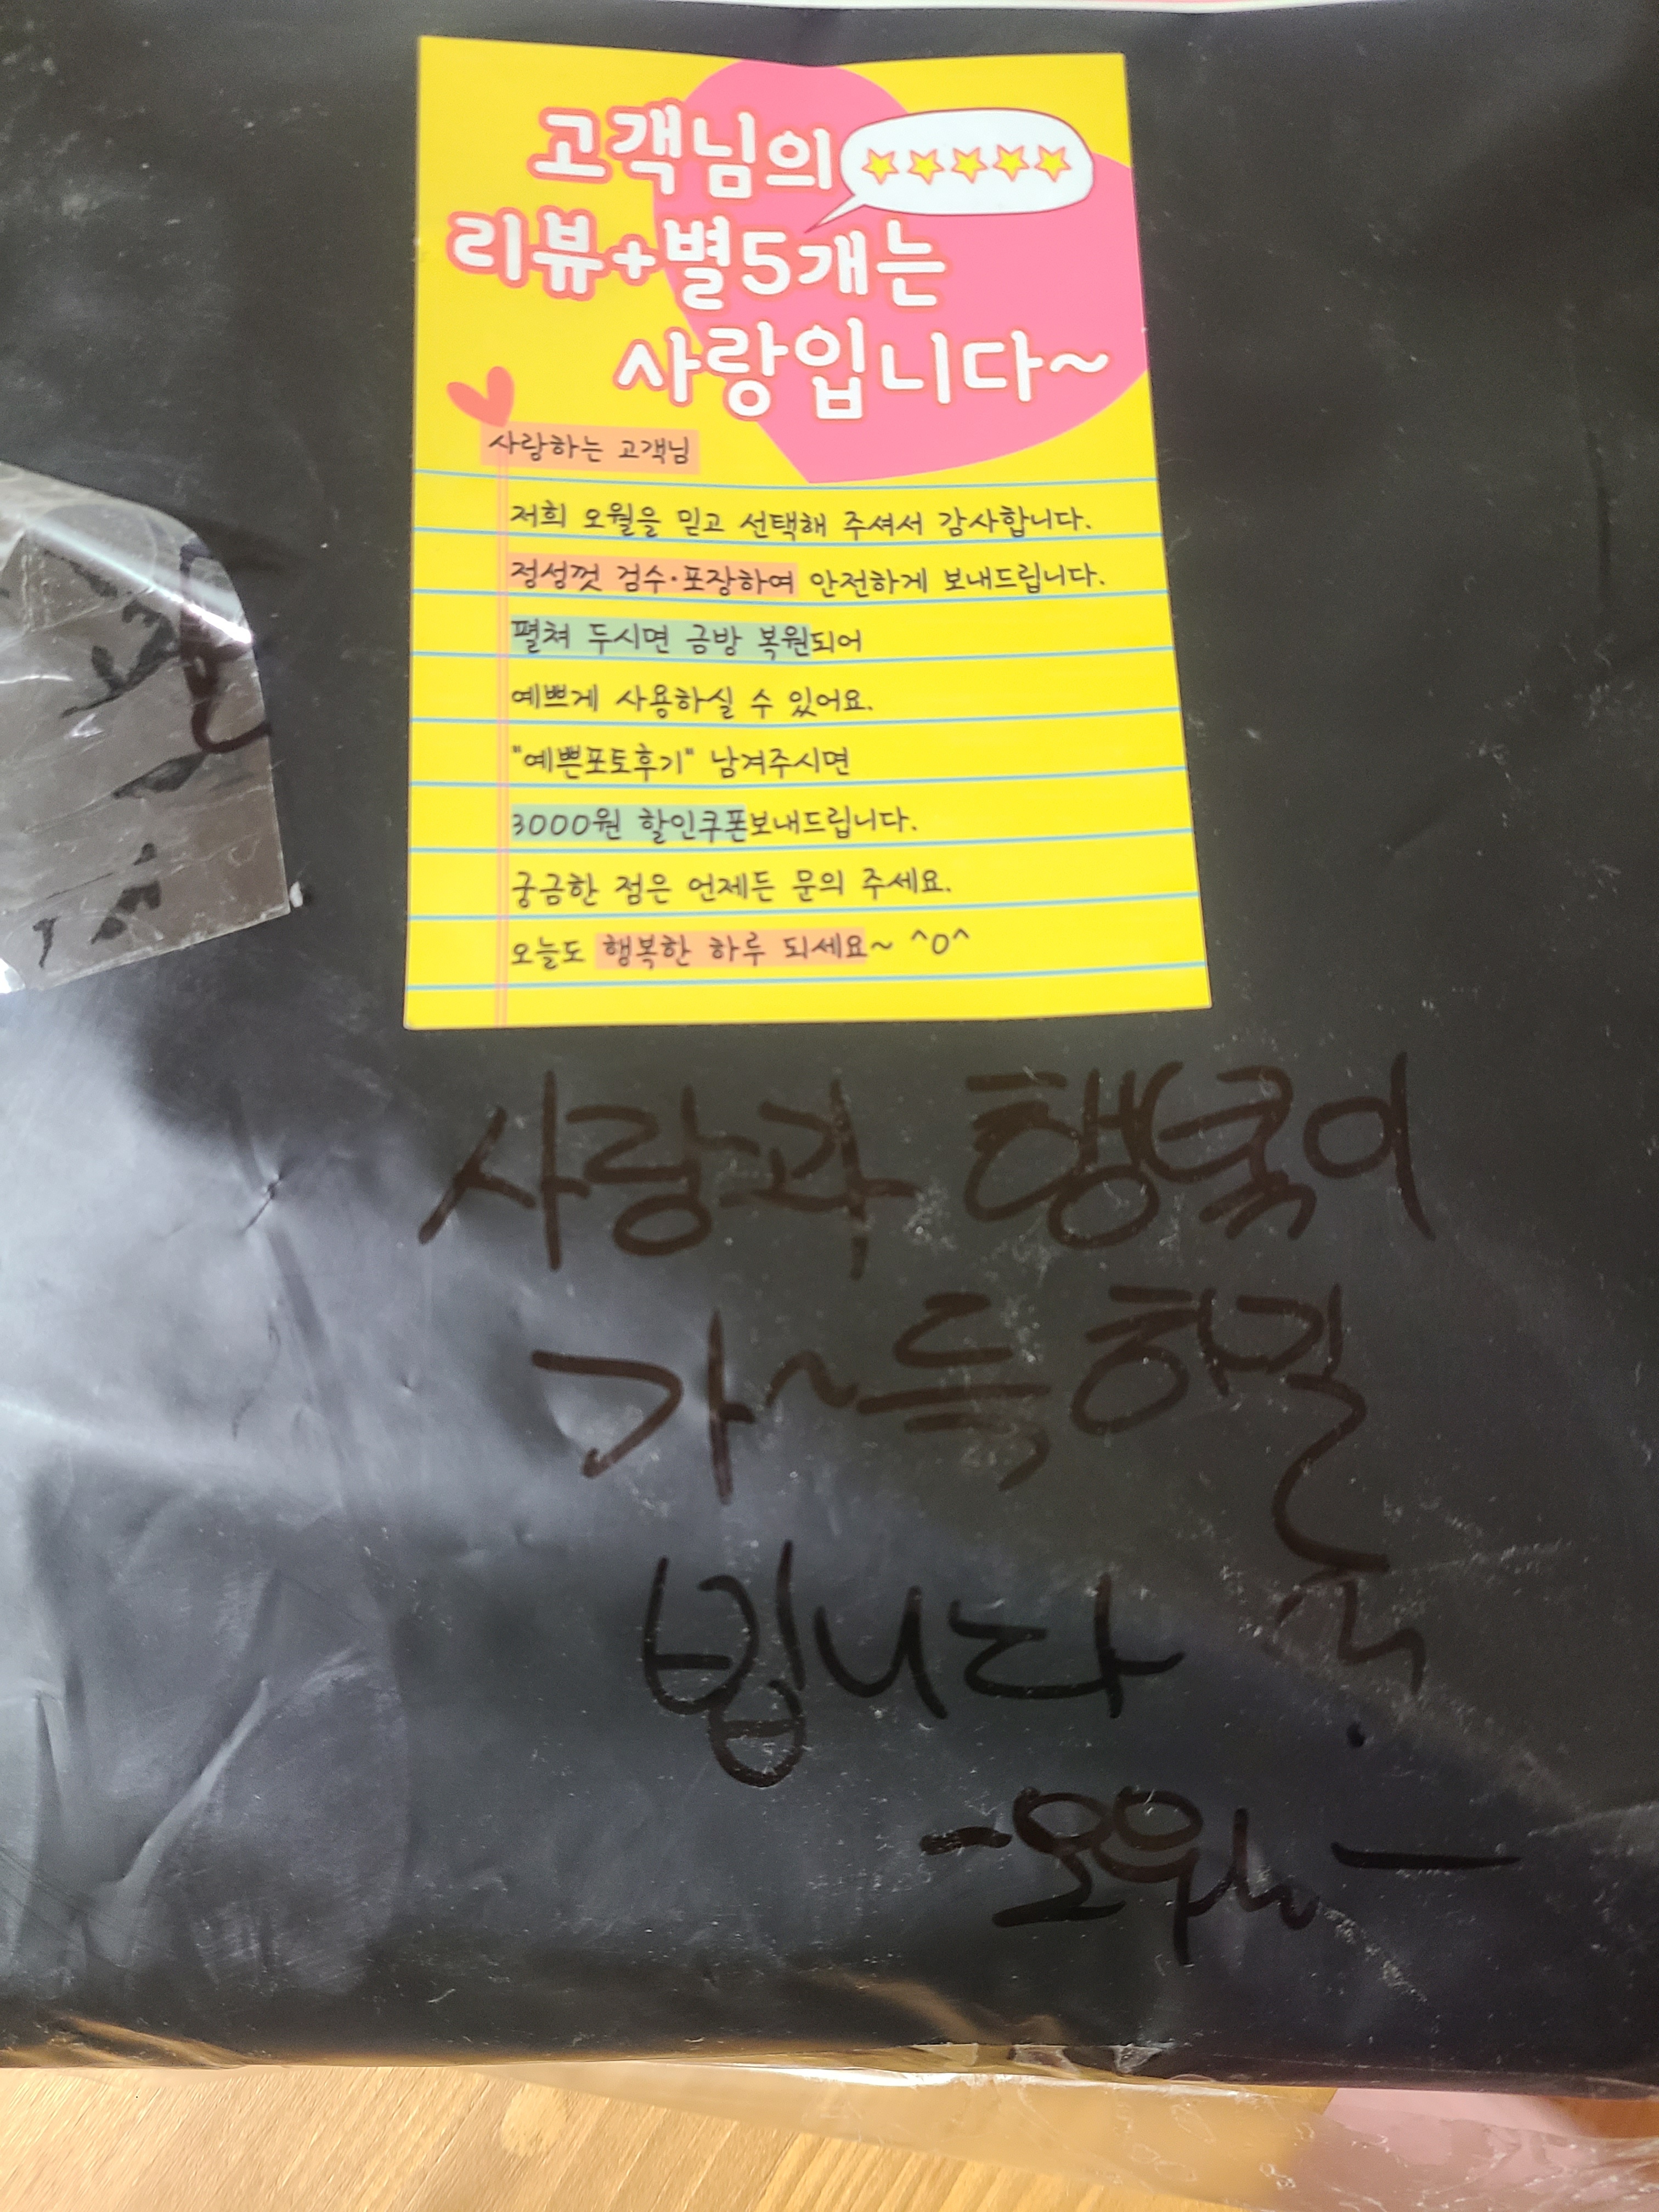 고객님의
리뷰+별5개는
사랑입니다~
사랑하는 고객님
저희 오월을 믿고 선택해 주셔서 감사합니다.
정성껏 검수·포장하여 안전하게 보내드립니다.
펼쳐 두시면 금방 복원되어
예쁘게 사용하실 수 있어요.
"예쁜포토후기" 남겨주시면
3000원 할인쿠폰보내드립니다.
궁금한 점은 언제든 문의 주세요.
오늘도 행복한 하루 되세요~ ^0^
사랑과 행복이
가~득하길
빕니다.
-오월